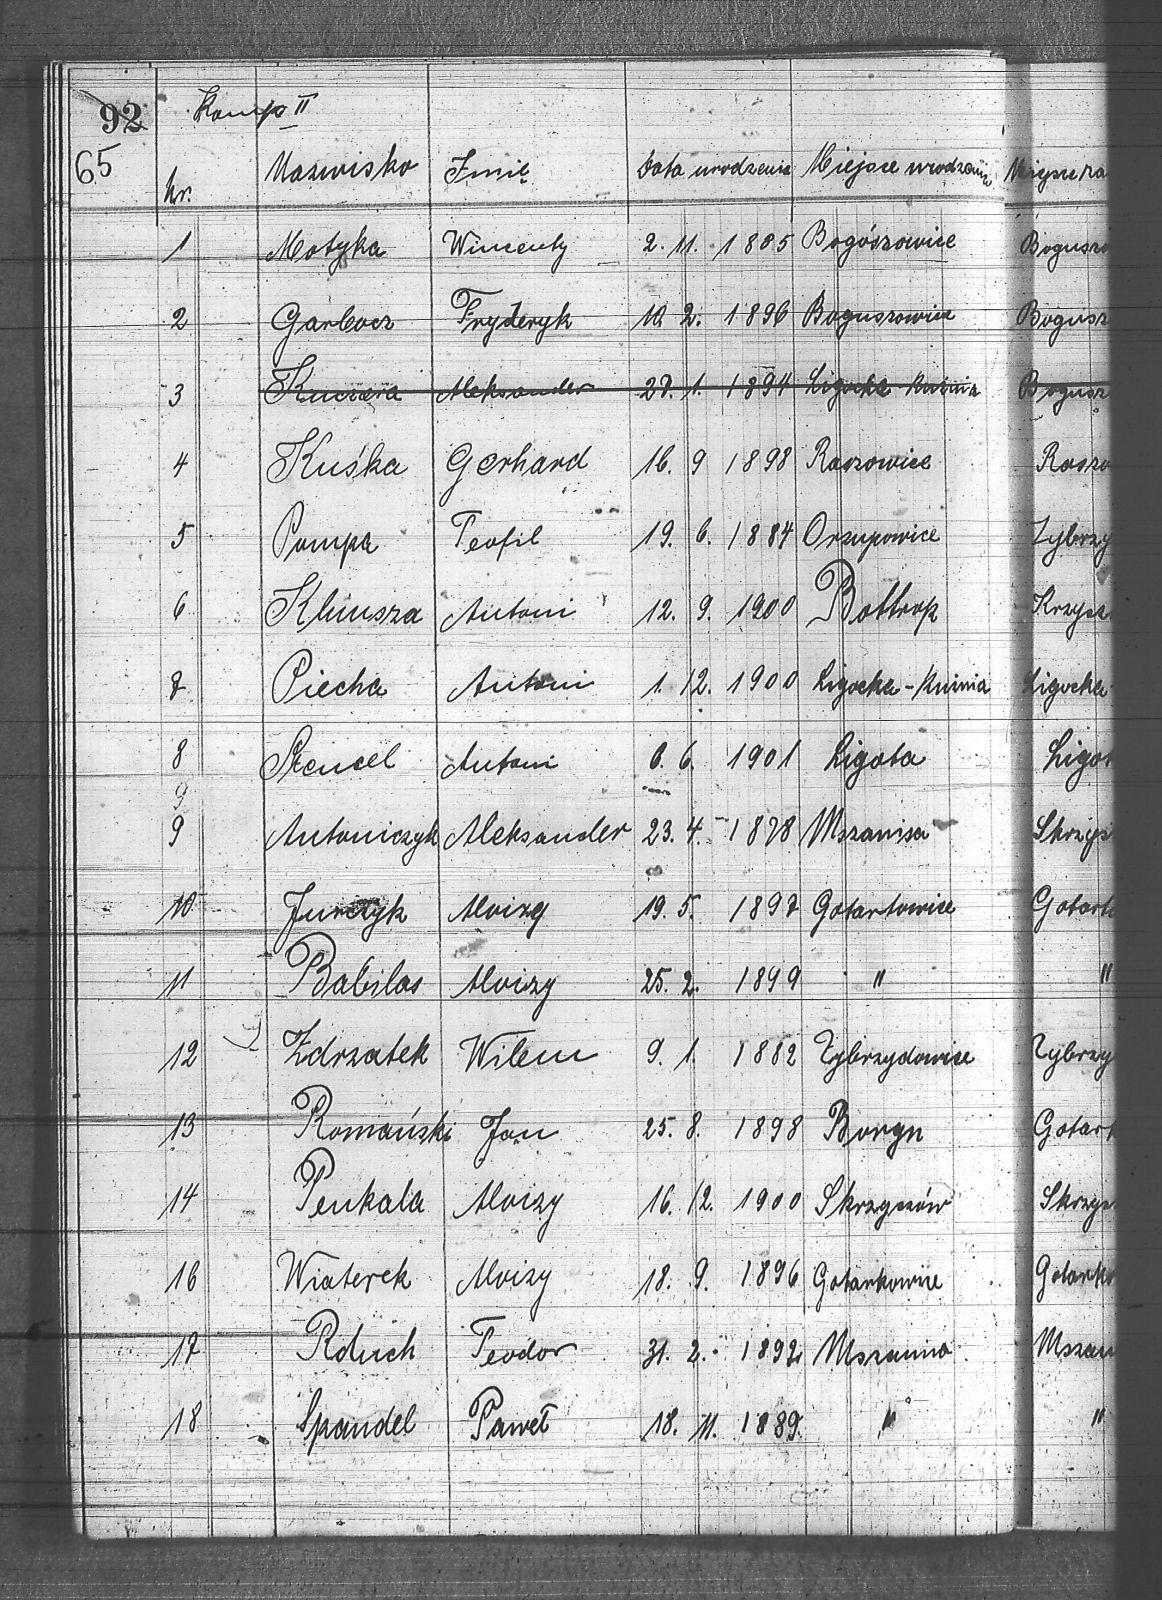 92 Komp II
65
Nr. Nazwisko Imię Data urodzenia Miejsce urodzenia Miejsce za
1 Motyka Wincenty 2. 11. 1885 Bogószowice Boguszo
2 Garbocz Fryderyk 10. 2. 1896 Boguszowice Bogusz
3 Kuczera Aleksander 27. 1. 1894 Ligocka Kuźnia Bogusz
4 Kuśka Gerhard 16. 9 1898 Roszowice Roszo
5 Pompa Teofil 19. 6. 1884 Orzupowice Zybrzy
6 Klimsza Antoni 12. 9. 1900 Bottrop Krzysz
7 Piecha Antoni 1. 12. 1900 Ligocka-Kuźnia Ligocka
8 Stencel Antoni 6. 6. 1901 Ligota Ligot
9
9 Antończyk Aleksander 23. 4. 1878 Mszanisa Skrzys
10 Jurczyk Aloizy 19. 5. 1897 Gotartowice Gotarto
11 Babilas Aloizy 25. 2. 1899 " "
12 Zdrzatek Wilem 9. 1. 1882 Zybrzydowice Zybrzy
13 Romański Jan 25. 8. 1898 Boryn Gotart
14 Penkala Aloizy 16. 12. 1900 Skrzyszów Skrzysz
16 Wiaterek Aloizy 18. 9. 1896 Gotarkowice Gotarko
17 Rduch Teodor 31. 2. 1892 Mszanna Mszan
18 Spandel Paweł 18. 11. 1889. " "